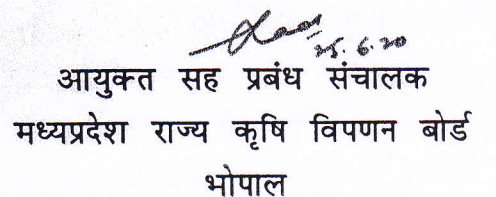 25.6.20
आयुक्त सह प्रबंध संचालक
मध्यप्रदेश राज्य कृषि विपणन बोर्ड
भोपाल